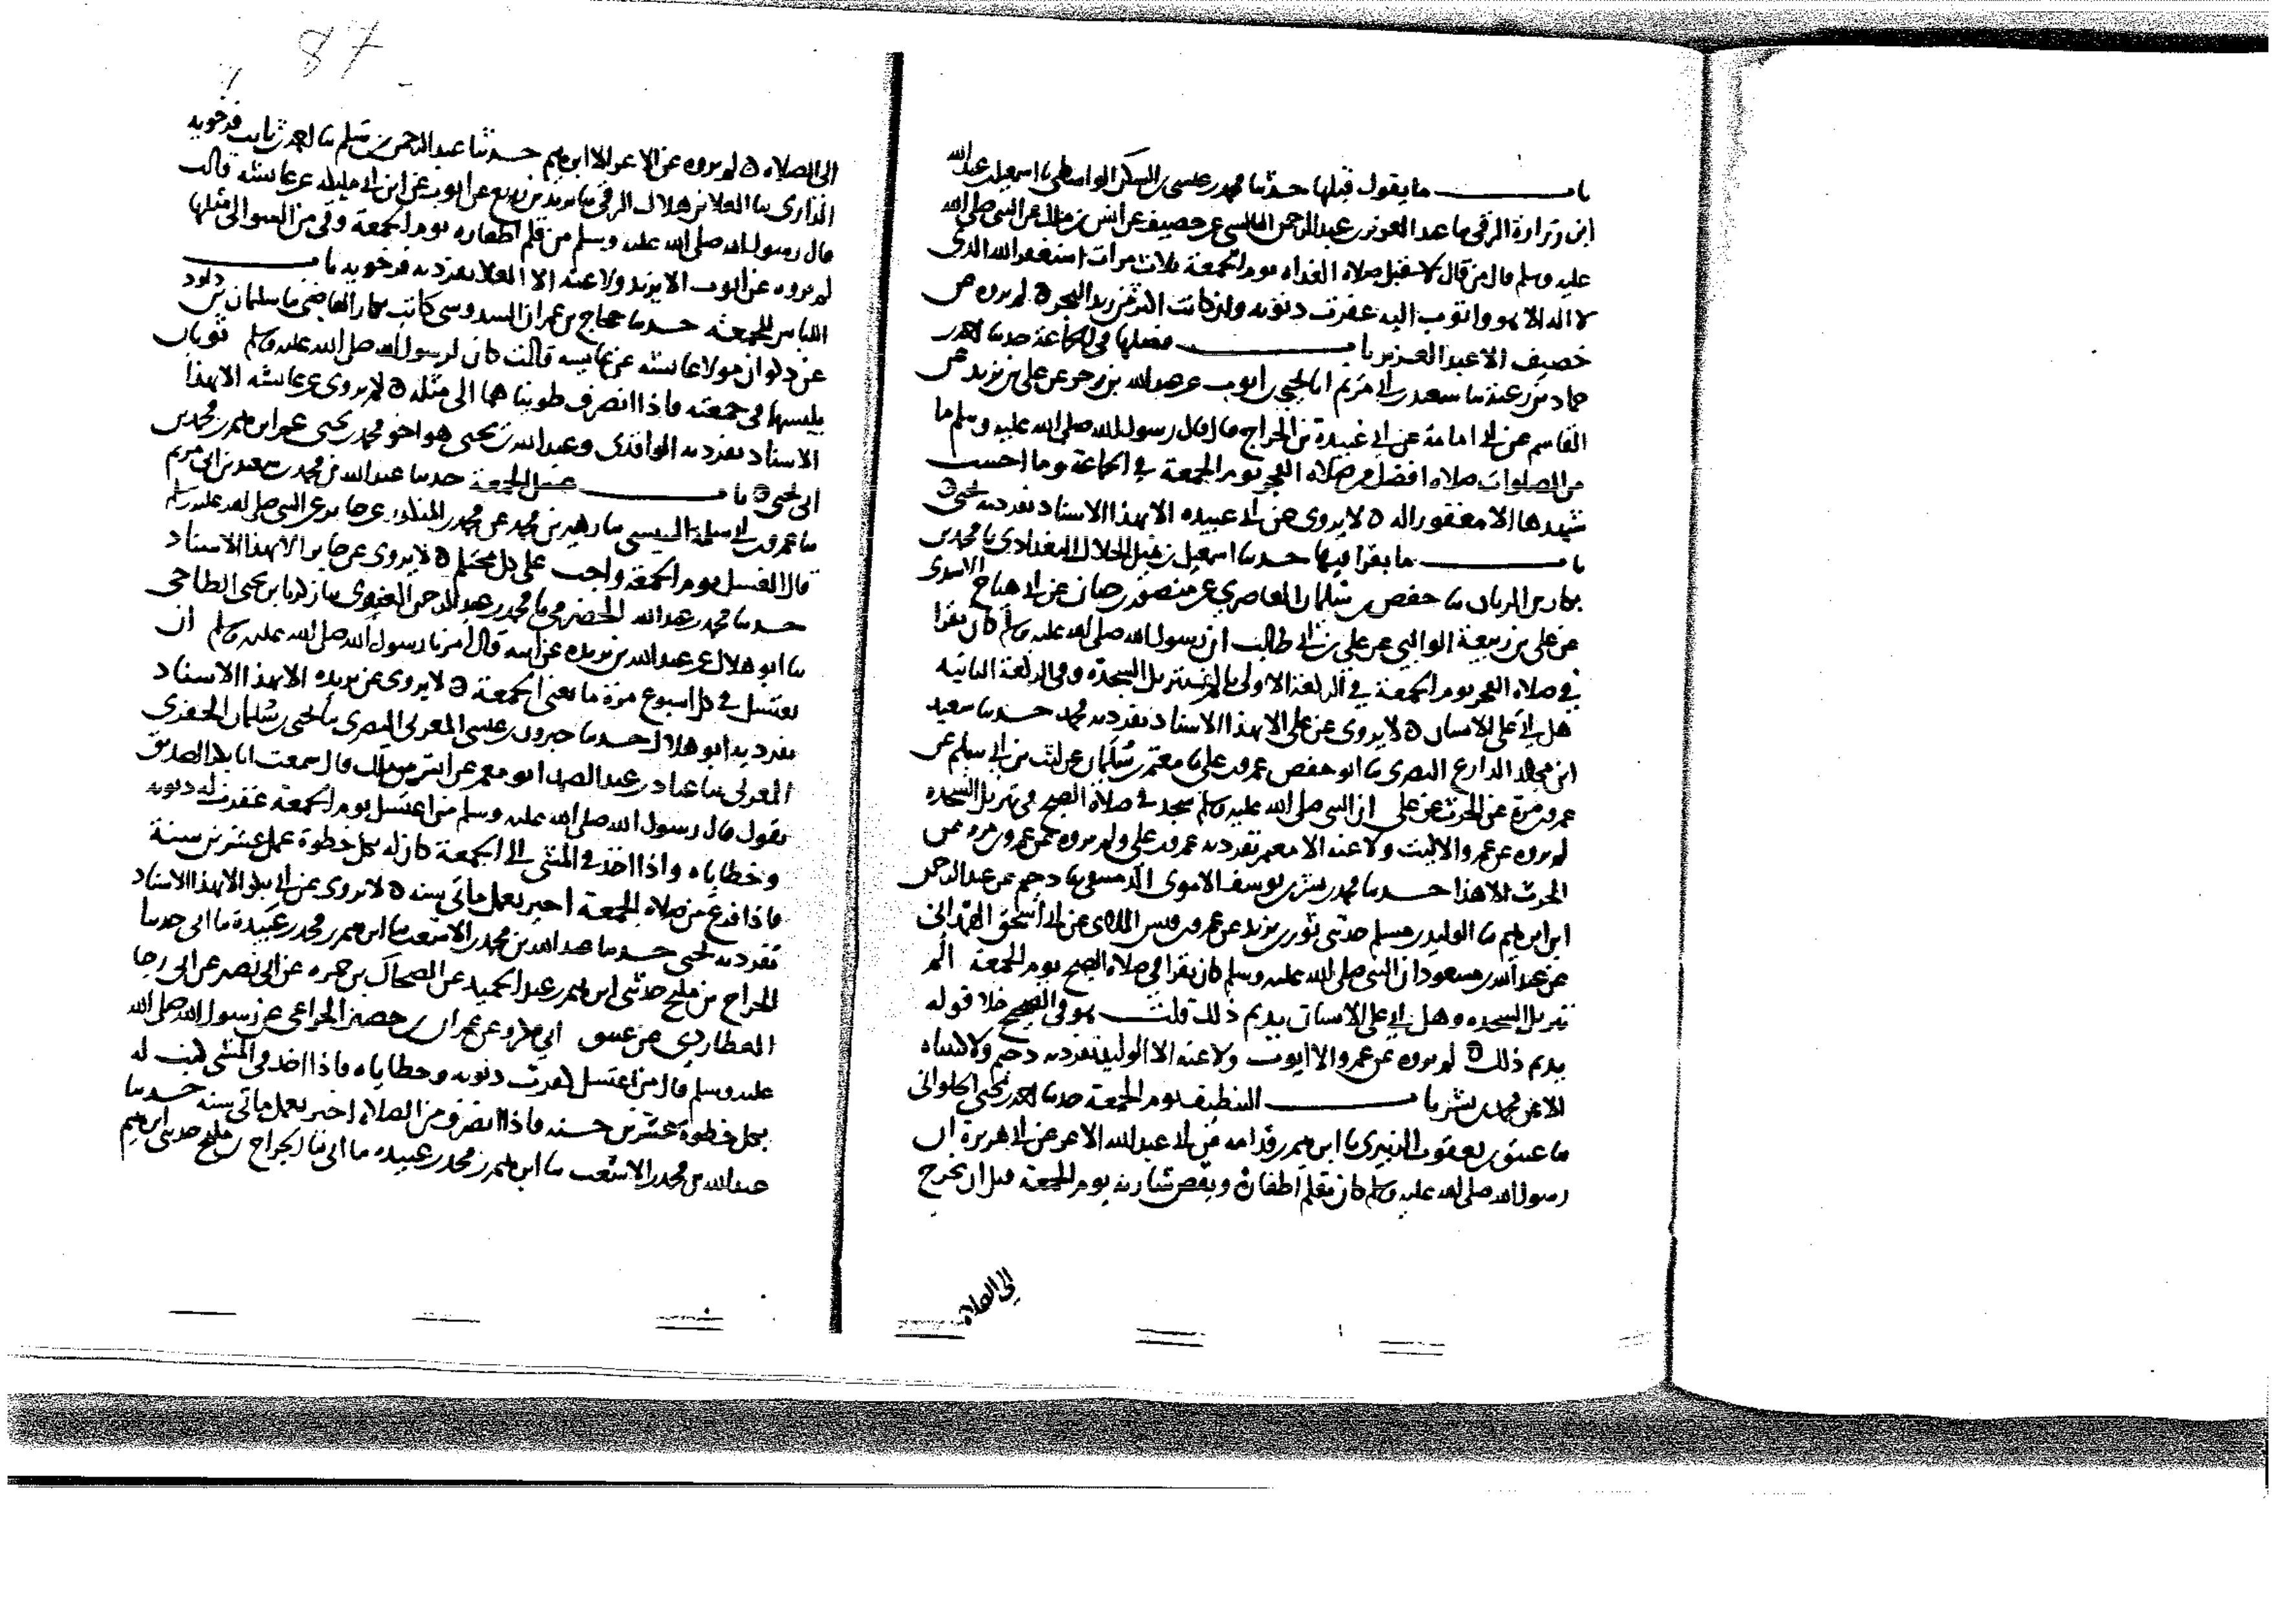 باب ما يقول قبلها حدثنا محمد بن عيسى بن السكن الواسطي نا اسمعيل بن عبد الله
ابن زرارة الرقي نا عبد العزيز بن عبد الرحمن البالسي عن خصيف عن انس بن مالك عن النبي صلى الله
عليه وسلم قال من قال قبل صلاة الغداه يوم الجمعة ثلاث مرات استغفر الله الذي
لا اله الا هو واتوب اليه غفرت ذنوبه وان كانت اكثر من زبد البحر ٥ لم يروه عن
خصيف الا عبد العزيز باب فضلها في الجماعة حدثنا احمد
حماد بن زغبة نا سعيد بن ابي مريم انا يحيى بن ايوب عن عبيد الله بن زحر عن علي بن يزيد عن
القاسم عن ابي امامة عن ابي عبيدة بن الجراح قال قال رسول الله صلى الله عليه وسلم ما
من الصلوات صلاه افضل من صلاه الفجر يوم الجمعة في الجماعة وما احسب
شهدها الا مغفورا له ٥ لا يروى عن ابي عبيده الا بهذا الاسناد تفرد به يحيى ٥
باب ما يقرا فيها حدثنا اسمعيل بن نميل الخلال البغدادي نا محمد بن
بكار بن الريان نا حفص بن سليمان الغاضري عن منصور بن حيان عن ابي هياج الاسدي
عن علي بن ربيعة الوالبي عن علي بن ابي طالب ان رسول الله صلى الله عليه وسلم كان يقرا
في صلاه الفجر يوم الجمعة في الركعة الاولى بالم تنزيل السجده وفي الركعة الثانيه
هل اتى على الانسان ٥ لا يروى عن علي الا بهذا الاسناد تفرد به محمد حدثنا سعيد
ابن محمد الدارع البصري نا ابو حفص عمرو بن علي نا معتمر بن سليمان عن ليث بن ابي سليم عن
عمرو بن مرة عن الحرث عن علي ان النبي صلى الله عليه وسلم سجد في صلاة الصبح في تنزيل السجده
لم يروه عن عمرو الا ليث ولا عنه الا معتمر تفرد به عمرو بن علي ولم يروه عن عمرو بن مره عن
الحرث الا هذا حدثنا محمد بن بشر بن يوسف الاموي الدمشقي نا دحيم عبد الرحمن
ابن ابراهيم نا الوليد بن مسلم حدثني ثور بن يزيد عن عمرو بن قيس الملائي عن ابي اسحق الهمداني
عن عبد الله بن مسعود ان النبي صلى الله عليه وسلم كان يقرا في صلاه الصبح يوم الجمعة الم
تنزيل السجده وهل اتى على الانسان يديم ذلك قلت هو في الصحيح خلا قوله
يديم ذلك ٥ لم يروه عن عمرو الا ايوب ولا عنه الا الوليد تفرد به دحيم ولا كتبناه
الا عن محمد بن بشر باب التنظيف يوم الجمعة حدثنا احمد بن يحيى الحلواني
نا عتيق بن يعقوب الزبيري نا ابراهيم بن قدامه عن ابي عبد الله الاغر عن ابي هريرة ان
رسول الله صلى الله عليه وسلم كان يقلم اظفاره ويقص شاربه يوم الجمعة قبل ان يخرج
الى الصلاه
87
الى الصلاه ٥ لم يروه عن الاغر الا ابراهيم حدثنا عبد الرحمن بن سلم نا احمد بن ثابت فرخويه
الرازي نا العلا بن هلال الرقي نا يزيد بن زريع عن ايوب عن ابن ابي مليكه عن عائشه قالت
قال رسول الله صلى الله عليه وسلم من قلم اظفاره يوم الجمعة وقي من السوء الى مثلها
لم يروه عن ايوب الا يزيد ولا عنه الا العلا تفرد به فرخويه باب
اللباس للجمعة حدثنا حجاج بن عمران السدوسي كاتب بكار القاضي نا سليمان بن داود
عن ذكوان مولى عائشه عن عائشه قالت كان لرسول الله صلى الله عليه وسلم ثوبان
يلبسهما في جمعته فاذا انصرف طويناهما الى مثله ٥ لا يروى عن عائشه الا بهذا
الاسناد تفرد به الواقدي وعبد الله بن يحيى هو اخو محمد بن يحيى عم ابراهيم بن محمد بن
ابي يحيى ٥ باب غسل الجمعة حدثنا عبد الله بن محمد بن سعيد بن ابي مريم
نا عمرو بن ابي سلمة التنيسي نا زهير بن محمد عن محمد بن المنكدر عن جابر عن النبي صلى الله عليه وسلم
قال الغسل يوم الجمعة واجب على كل محتلم ٥ لا يروى عن جابر الا بهذا الاسناد
حدثنا محمد بن عبد الله الحضرمي نا محمد بن عبد الرحمن العنبري نا زكريا بن يحيى الطاحي
نا ابو هلال عن عبد الله بن بريده عن ابيه قال امرنا رسول الله صلى الله عليه وسلم ان
نغتسل في كل اسبوع مرة ما يعني الجمعة ٥ لا يروى عن بريده الا بهذا الاسناد
تفرد به ابو هلال حدثنا جبرون بن عيسى المغربي المصري نا يحيى بن سليمان الحفري
المغربي نا عباد بن عبد الصمد ابو معمر عن انس بن مالك قال سمعت ابا بكر الصديق
يقول قال رسول الله صلى الله عليه وسلم من اغتسل يوم الجمعة غفرت له ذنوبه
وخطاياه واذا اخذ في المشي الى الجمعة كان له بكل خطوة عمل عشرين سنة
فاذا فرغ من صلاه الجمعة اجيز بعمل مائتي سنه ٥ لا يروى عن ابي بكر الا بهذا الاسناد
تفرد به يحيى حدثنا عبد الله بن محمد بن الاشعث نا ابراهيم بن محمد بن عبيدة نا ابي حدثنا
الجراح بن مليح حدثني ابراهيم بن عبد الحميد عن الضحاك بن حمره عن ابي نصر عن ابي رجا
العطاردي عن عتيق ابي بكر وعن عمران بن حصين الخزاعي عن رسول الله صلى الله
عليه وسلم قال من اغتسل كفرت ذنوبه وخطاياه فاذا اخذ في المشي كتب له
بكل خطوة عشرين حسنه فاذا انصرف من الصلاه اجيز بعمل مائتي سنه حدثنا
عبد الله بن محمد بن الاشعث نا ابراهيم بن محمد بن عبيده نا ابي نا الجراح بن مليح حدثني ابراهيم